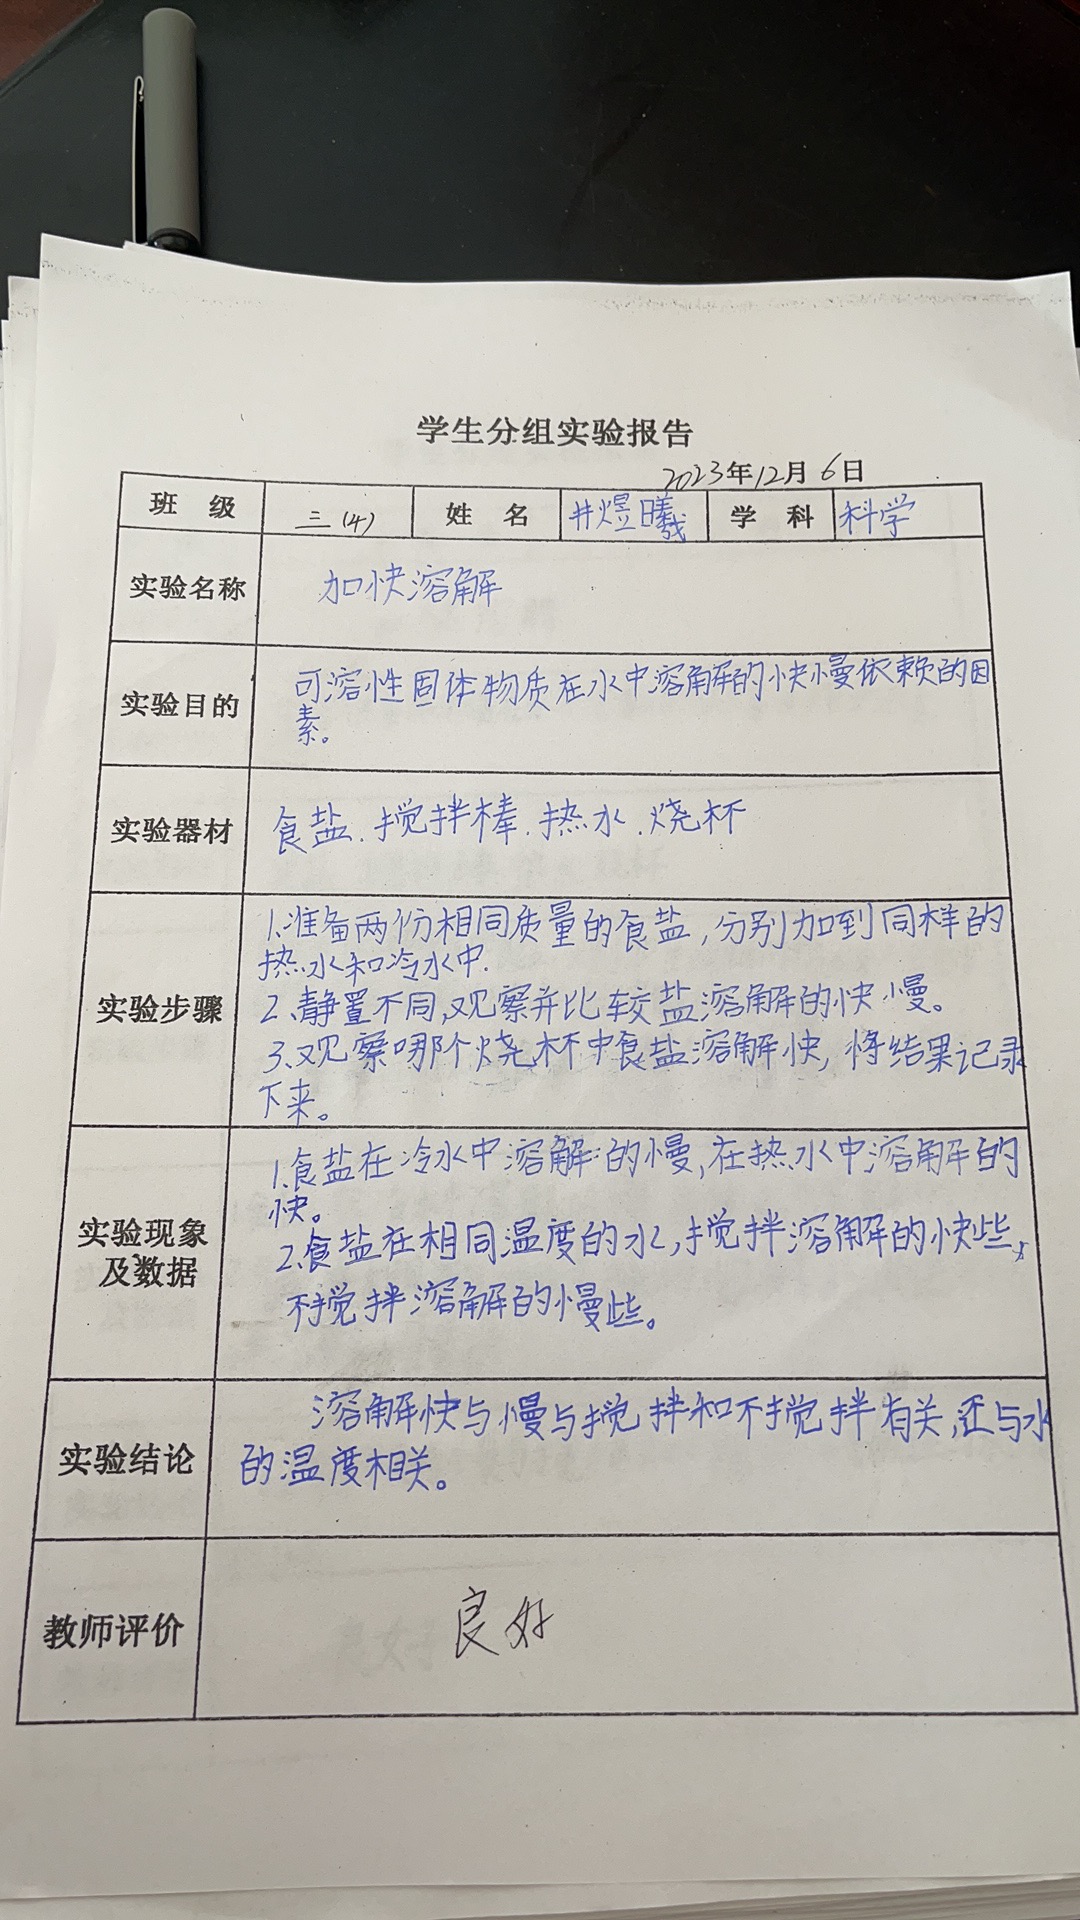 学生分组实验报告
2023年12月6日
班 级 三(4) 姓 名 井煜曦 学 科 科学
实验名称 加快溶解
实验目的 可溶性固体物质在水中溶解的快慢依赖的因
素。
实验器材 食盐.搅拌棒.热水.烧杯
实验步骤
1.准备两份相同质量的食盐,分别加到同样的
热水和冷水中.
2.静置不同,观察并比较盐溶解的快慢。
3.观察哪个烧杯中食盐溶解快,将结果记录
下来。
实验现象
及数据
1.食盐在冷水中溶解的慢,在热水中溶解的
快。
2.食盐在相同温度的水,搅拌溶解的快些,
不搅拌溶解的慢些。
实验结论
溶解快与慢与搅拌和不搅拌有关,还与水
的温度相关。
教师评价 良好